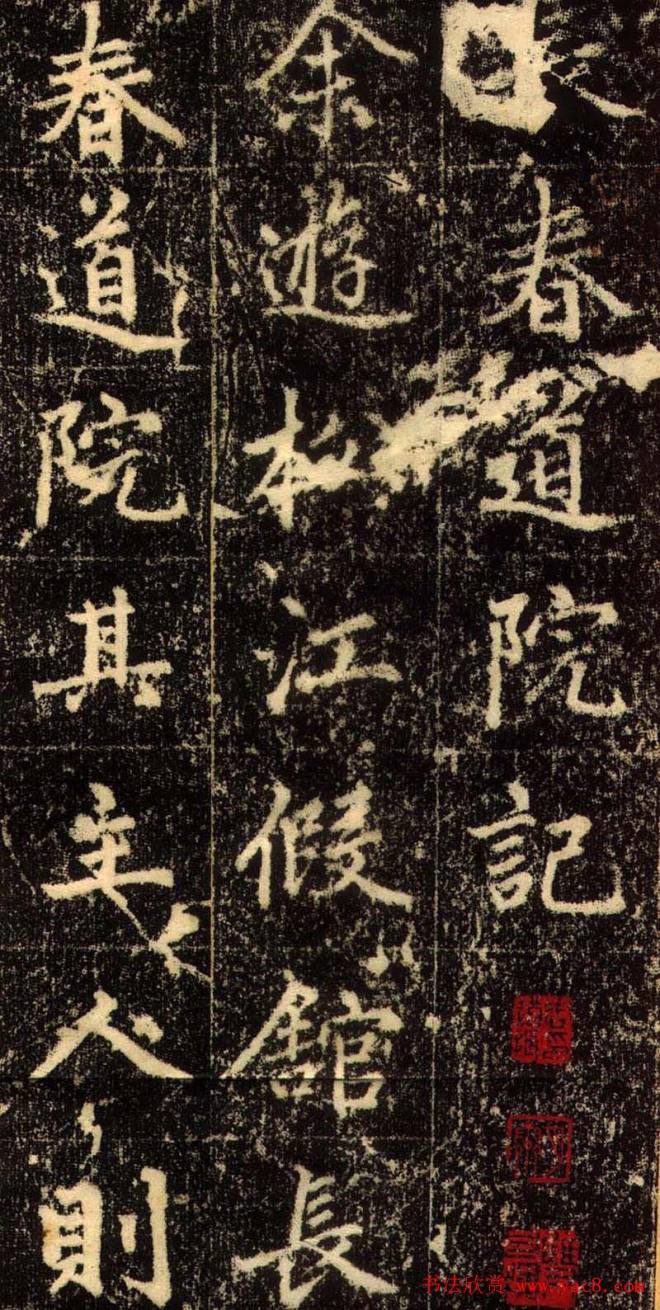 長春道院記
余遊松江假舘長
春道院其主人則
书法欣赏 www.yac8.com